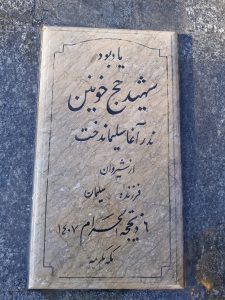 یادبود
شهید حج خونین
نذرآغا سلیماندخت
از شیروان
فرزند سلیمان
۶ ذیحجه الحرام ۱۴۰۷
مکه مکرمه